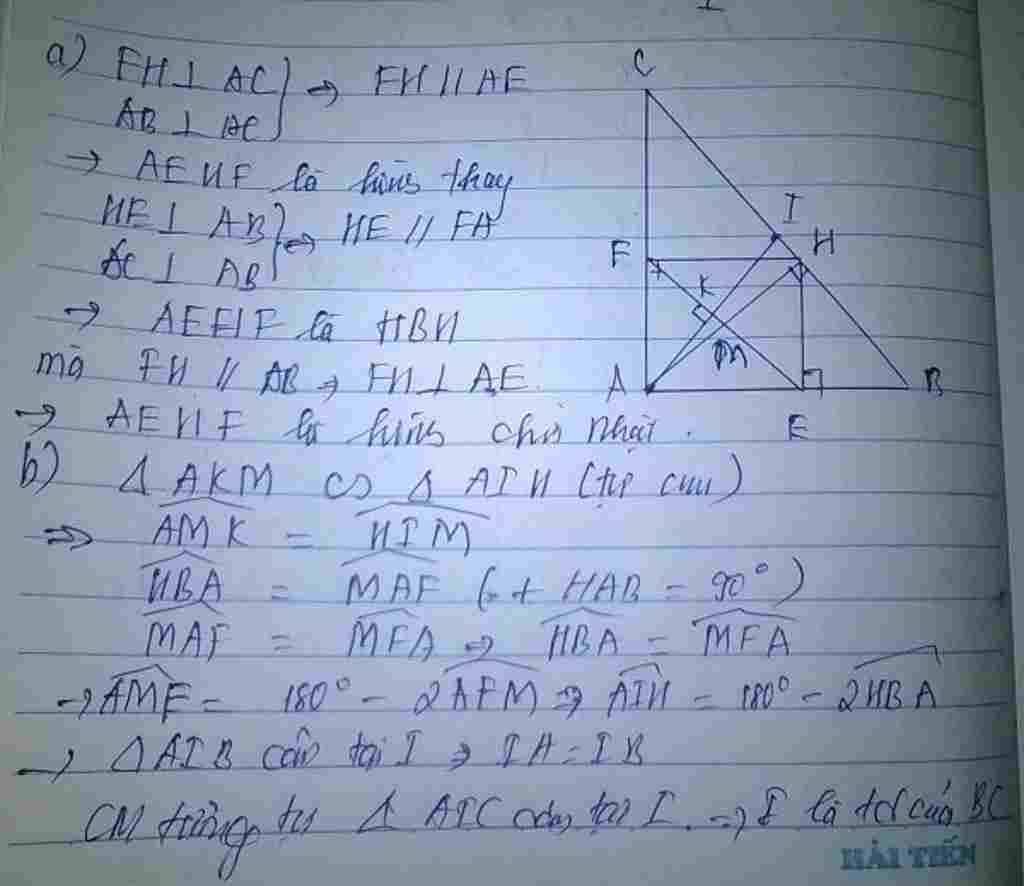 a) FH ⊥ AC } → FH // AE
AB ⊥ AC
→ AEHF là hình thang
HE ⊥ AB } → HE // FA
AC ⊥ AB
→ AEHF là HBH
mà FH // AB → FH ⊥ AE.
→ AEHF là hình chữ nhật.
b) Δ AKM ∽ Δ AIH
⇒ AMK = HIM
HBA = MAF (+ HAB = 90°)
MAF = MFA ⇒ HBA = MFA
→ AMF = 180° - 2AFM ⇒ AIH = 180° - 2HBA
→ Δ AIB cân tại I ⇒ IA = IB
CM tương tự Δ AIC cân tại I. ⇒ I là của BC
C
I
F
H
K
M
A
E
B
HẢI TIẾN